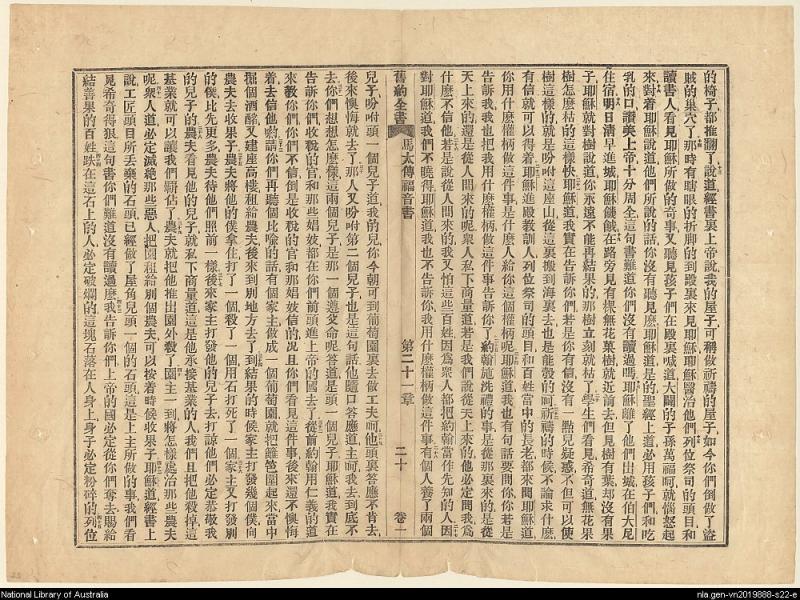 的椅子都推翻了說道經書裏上帝說我的屋子可稱做祈禱的屋子如今你們倒做了盜
賊的巢穴了那時有瞎眼的折脚的到殿裏來見耶穌耶穌醫治他們列位祭司的頭目和
讀書人看見耶穌所做的奇事又聽見孩子們在殿裏喊道大闢的子孫萬福呵就惱怒起
來對着耶穌說道他們所說的話你沒有聽見麽耶穌道是的聖經上道必用孩子們和吃
乳的口讚美上帝十分周全這句書難道你們沒有讀過嗎耶穌離了他們出城在伯大尼
住宿明日清早進城耶穌餓在路旁見有樣無花菓樹就近前去但見樹有葉却沒有果
子耶穌就對樹說道你永遠不能再結果的那樹立刻就枯了學生們看見希奇道無花果
樹怎麽枯的這樣快耶穌道我實在告訴你們若是你有信沒有一點兒疑惑不但可以使
樹這樣的就是吩咐這座山從這裏搬到海裏去也是能彀的呵祈禱的時候不論求什麽
有信就可以得着耶穌進殿教訓人列位祭司的頭目和百姓當中的長老都來問耶穌道
你用什麽權柄做這件事是什麽人給你這個權柄呢耶穌道我也有句話要問你你若是
告訴我我也把我用什麽權柄做這件事告訴你了約翰施洗禮的事是從那裏來的是從
天上來的還是從人間來的呢衆人私下商量道若是我們說從天上來的他必定問我爲
什麽不信他若是說從人間來的我又怕這些百姓因爲衆人都把約翰當作先知的人因
對耶穌道我們不曉得耶穌道我也不告訴你我用什麽權柄做這件事有個人養了兩個
舊約全書 馬太傳福音書 第二十一章 二十 卷一
兒子吩咐頭一個兒子道我的兒你今朝可到葡萄園裏去做工夫呵他頭裏答應不肯去
後來懊悔就去了那人又吩咐第二個兒子也是這句話他隨口答應道主呵我去到底不
去你們想想怎麽樣這兩個兒子是那一個遵父命呢答道是頭一個兒子耶穌道我實在
告訴你們收稅的官和那些娼妓都在你們前頭進上帝的國去了從前約翰用仁義的道
來教你們你們不信倒是收稅的官和那娼妓信的况且你們看見這件事後來還不懊悔
着去信他喲請你們再聽個比喻的話有個家主做成一個葡萄園就把籬笆圍起來當中
掘個酒醡又建座高樓租給農夫後來到別地方去了到結果的時候家主打發幾個僕向
農夫去收果子農夫將他的僕拿住打了一個殺了一個用石打死了一個家主又打發別
的僕比先更多農夫待他們照前一樣後來家主打發他的兒子去打諒他們必定恭敬我
的兒子的農夫看見他的兒子就私下商量道這是他承接基業的人我們且把他殺掉這
基業就可以讓我們霸佔了農夫就把他推出園外殺了園主一到將怎樣處治那些農夫
呢衆人道必定滅絕那些惡人把園租給別個農夫可以按着時候收果子耶穌道經書上
說工匠頭目所丟棄的石頭已經做了屋角兒頭一個的石頭這是上主所做的事我們看
見希奇得狠這句書你們難道沒有讀過麽我告訴你們上帝的國必定從你們奪去賜給
結善果的百姓跌在這石上的人必定破爛的這塊石落在人身上身子必定粉碎的列位
National Library of Australia
nla.gen-vn2019888-s22-e